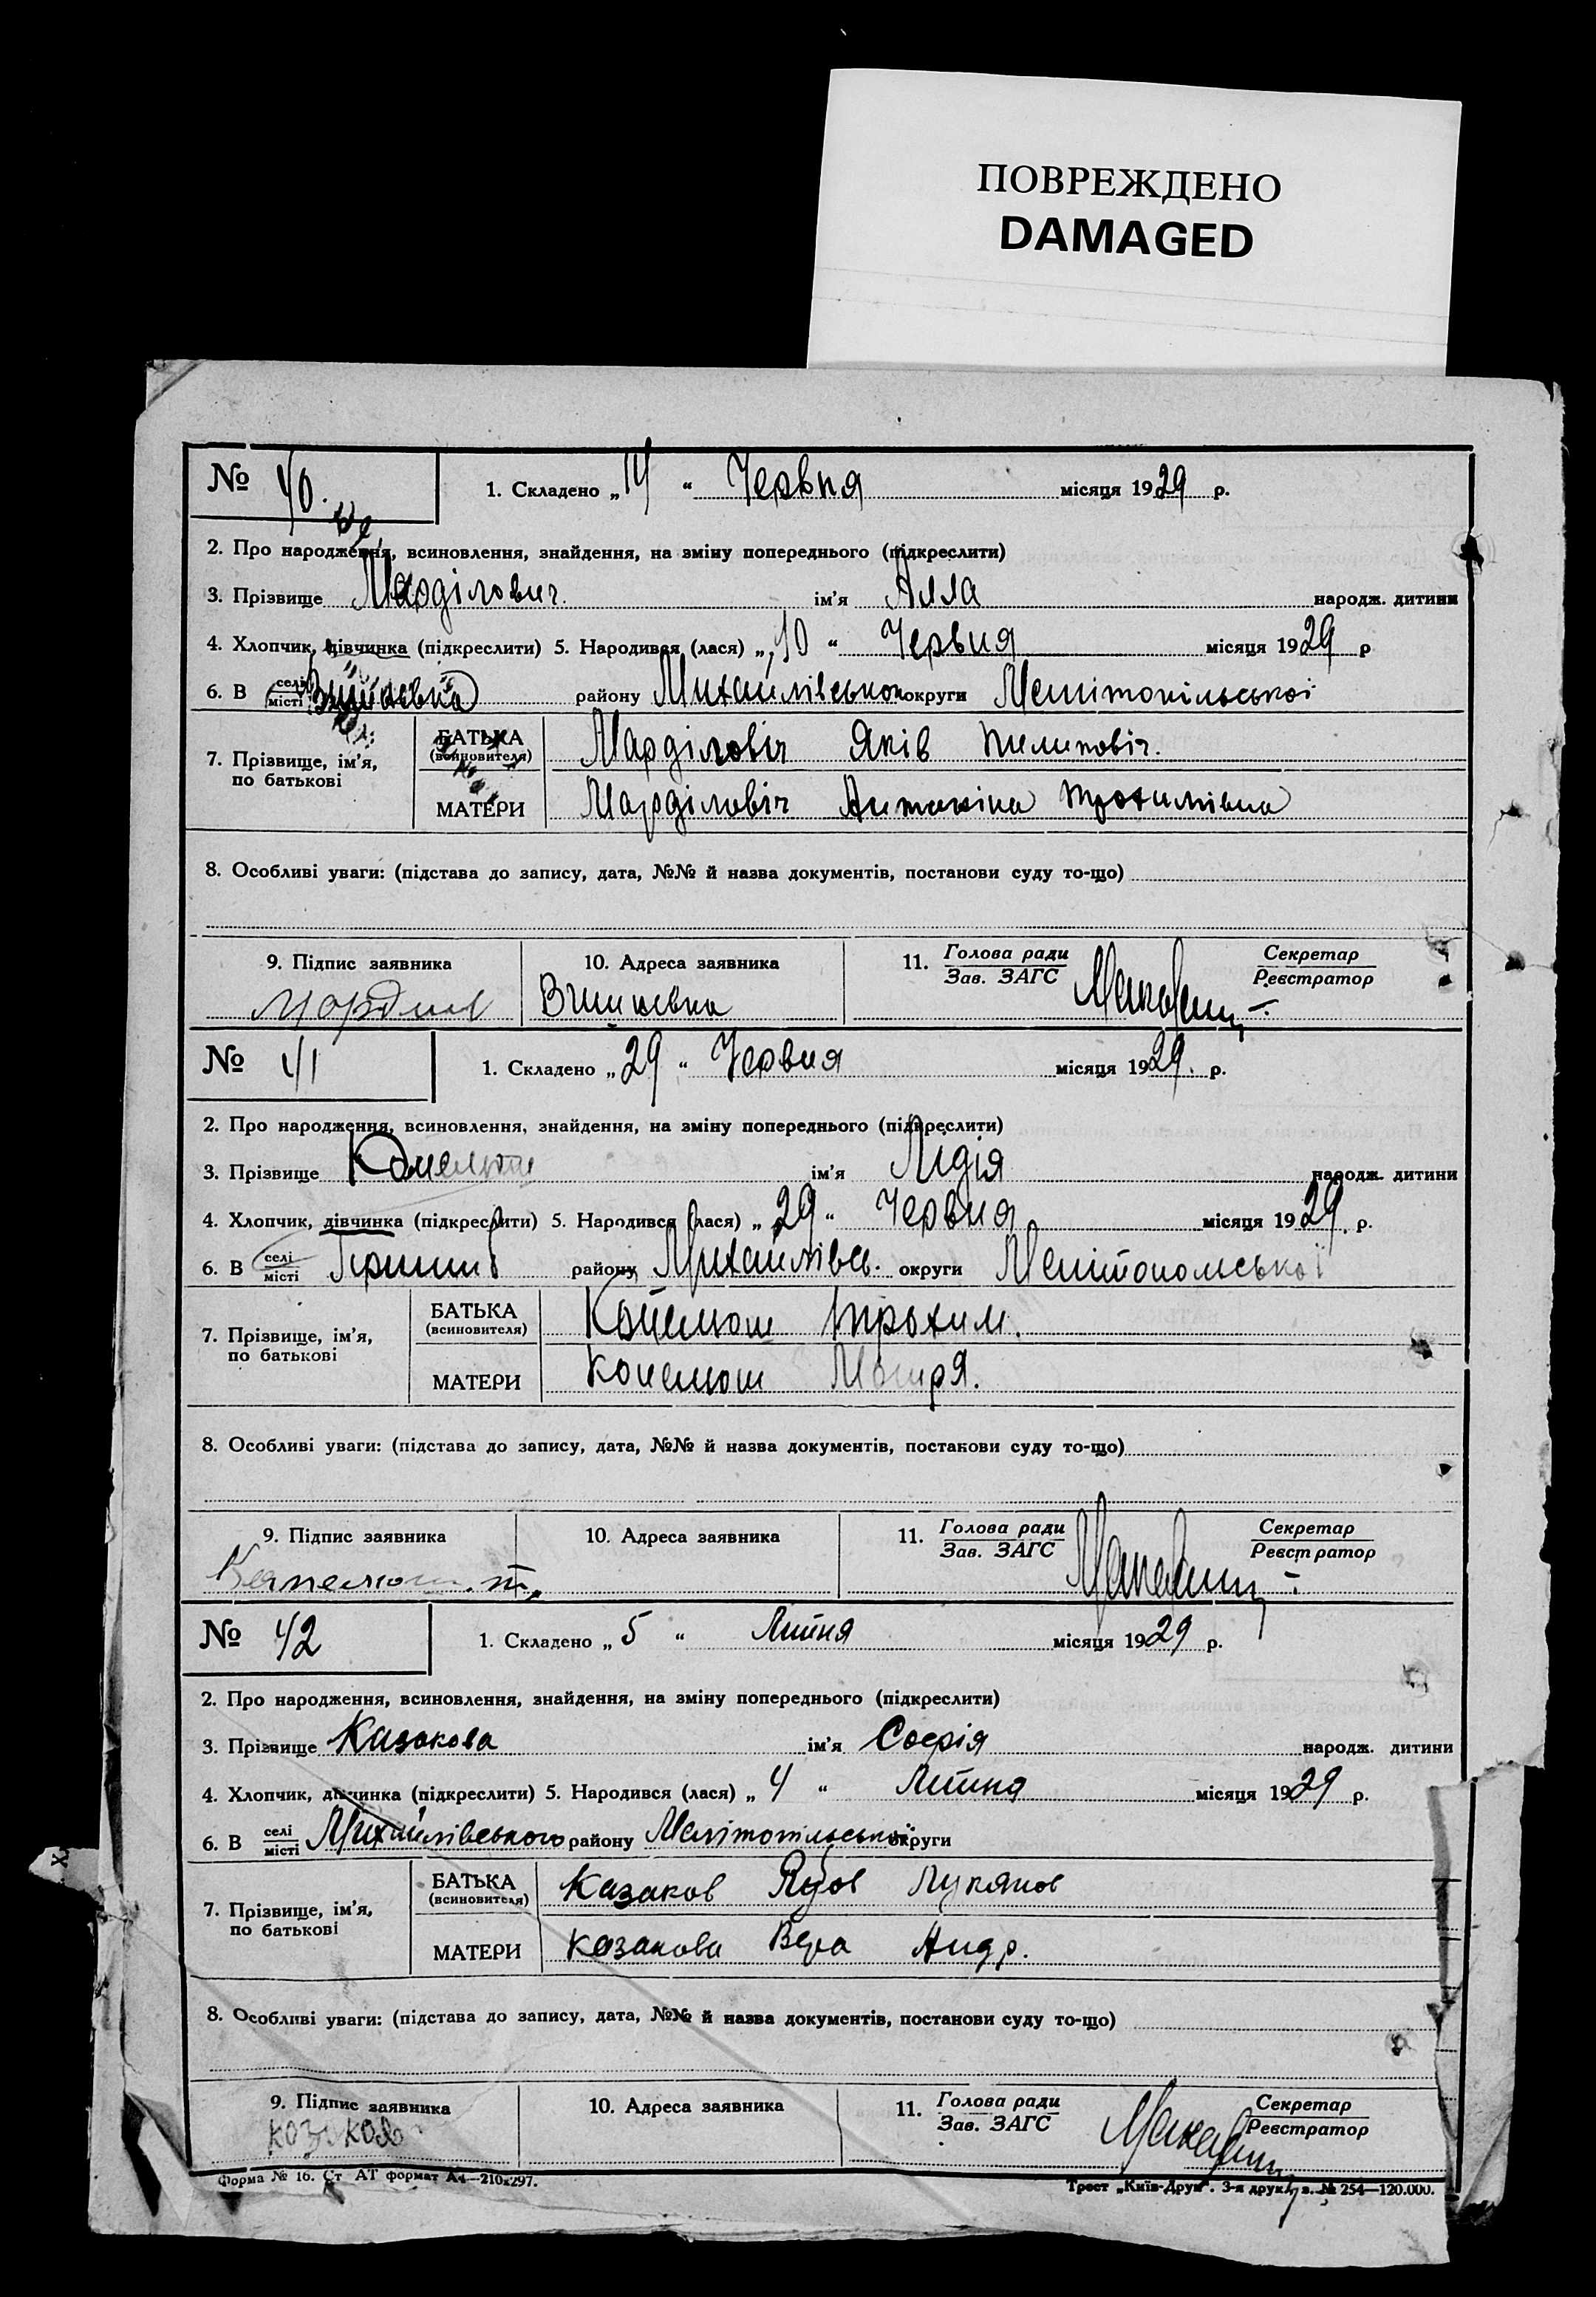 ПОВРЕЖДЕНО
DAMAGED
№ 40. 1. Складено „14“ Червня місяця 1929 р.
2. Про народження, всиновлення, знайдення, на зміну попереднього (підкреслити)
3. Прізвище Марділович. ім’я Алла народж. дитини
4. Хлопчик, дівчинка (підкреслити) 5. Народився (лася) „10“ Червня місяця 1929 р
6. В селі місті району Михайлівського округи Мелітопільської
7. Прізвище, ім’я, по батькові
БАТЬКА (всиновителя) Марділовіч Яків Пилиповіч.
МАТЕРИ Марділовіч Антоніна Трохимівна
8. Особливі уваги: (підстава до запису, дата, №№ й назва документів, постанови суду то-що)
9. Підпис заявника 10. Адреса заявника 11. Голова ради Зав. ЗАГС Секретар Реєстратор
№ 41 1. Складено „29“ Червня місяця 1929. р.
2. Про народження, всиновлення, знайдення, на зміну попереднього (підкреслити)
3. Прізвище ім’я Лідія народж. дитини
4. Хлопчик, дівчинка (підкреслити) 5. Народився (лася) „29“ Червня місяця 1929. р.
6. В селі місті району Михайлівсь. округи Мелітопольської
7. Прізвище, ім’я, по батькові
БАТЬКА (всиновителя) Трохим.
МАТЕРИ
8. Особливі уваги: (підстава до запису, дата, №№ й назва документів, постанови суду то-що)
9. Підпис заявника 10. Адреса заявника 11. Голова ради Зав. ЗАГС Секретар Реєстратор
Капелюш. т.
№ 42 1. Складено „5“ Липня місяця 1929 р.
2. Про народження, всиновлення, знайдення, на зміну попереднього (підкреслити)
3. Прізвище Казакова ім’я Софія народж. дитини
4. Хлопчик, дівчинка (підкреслити) 5. Народився (лася) „4“ Липня місяця 1929 р.
6. В селі місті Михайлівського району Мелітопільської округи
7. Прізвище, ім’я, по батькові
БАТЬКА (всиновителя) Казаков Лукянов
МАТЕРИ Казакова Вера Андр.
8. Особливі уваги: (підстава до запису, дата, №№ й назва документів, постанови суду то-що)
9. Підпис заявника 10. Адреса заявника 11. Голова ради Зав. ЗАГС Секретар Реєстратор
козаков
Форма № 16. Ст АТ формат А4—210х297. Трест „Київ-Друк“. 3-я друк. з. № 254—120.000.